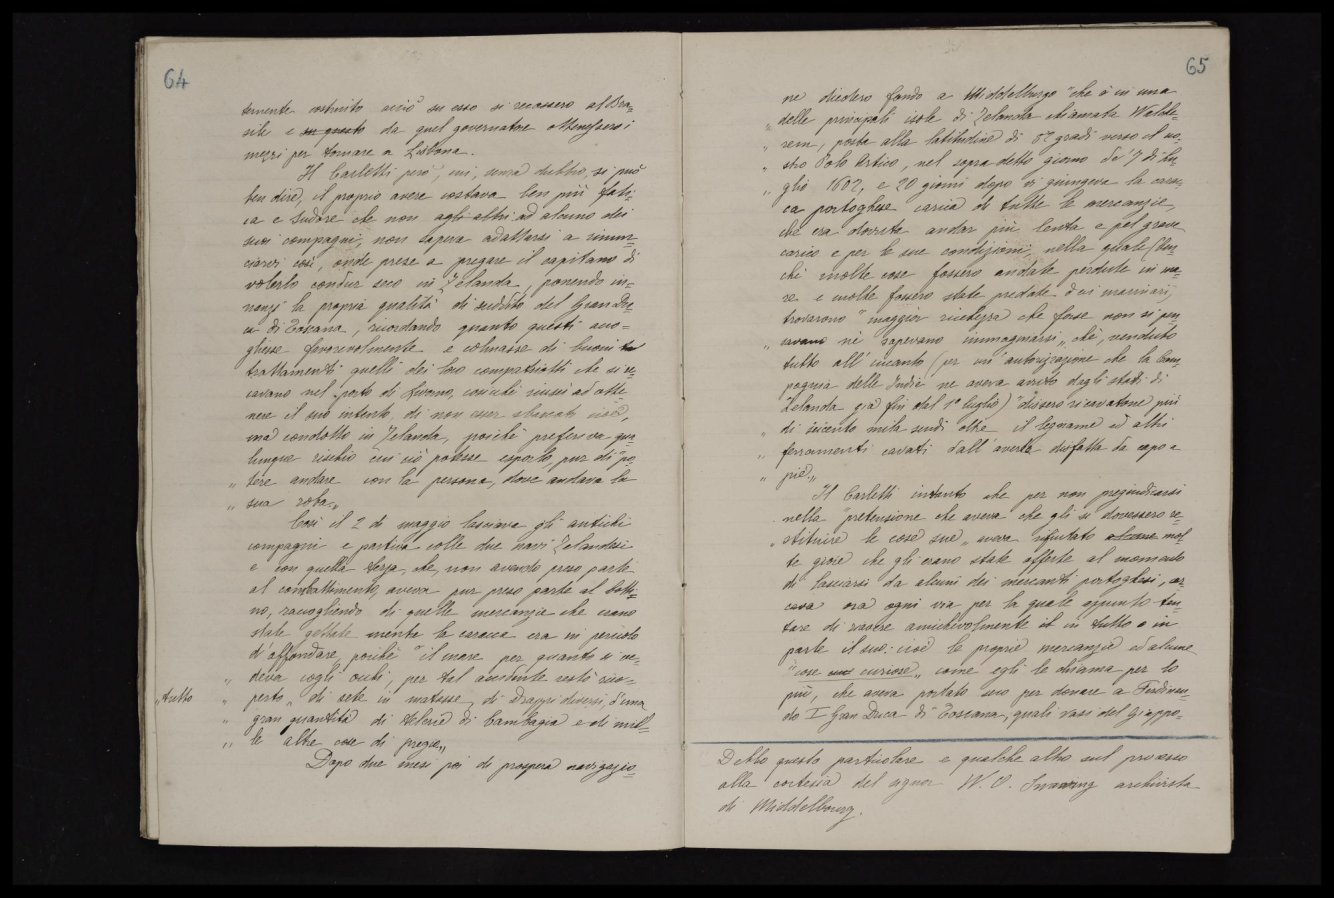 64
temente costruito acciò su esso si recassero al Bra=
sile e su questo da quel governatore ottenessero i
mezzi per tornare a Lisbona.
Il Carletti però, cui, senza dubbio, si può
ben dire, il proprio avere costava ben più fati=
ca e sudore che non agli altri ad alcuno dei
suoi compagni, non sapeva adattarsi a rinun=
ciarvi così, onde prese a pregare il capitano di
volerlo condur seco in Zelanda, ponendo in=
nanzi la propria qualità di suddito del Gran Du=
ca di Toscana, ricordando quanto questi acco=
gliesse favorevolmente e colmasse di buoni
trattamenti quelli dei loro compatriotti che si re=
cavano nel porto di Livorno, cosicché riuscì ad otte=
nere il suo intento, di non esser sbarcato cioè,
ma condotto in Zelanda, poichè preferiva qua=
lunque rischio cui ciò potesse esporlo, pur di "po=
„ tere andare con la persona, dove andava la
„ sua roba„
Così il 2 di maggio lasciava gli antichi
compagni e partiva colle due navi Zelandesi
e con quella terza, che, non avendo preso parte
al combattimento, aveva pur preso parte al botti=
no, raccogliendo di quelle mercanzie che erano
state gettate mentre la caracca era in pericolo
di affondare, poichè "il mare per quanto si ve=
„ deva cogli occhi, per tal accidente restò cuo=
„ tutto „ perto „ di sete in matasse, di drappi diversi, d'una
„ gran quantità di teleria di bambagia e di mil=
„ le altre cose di pregio„
Dopo due mesi poi di prospera navigazio=
65
ne diedero fondo a Middelburgo "che è in una
„ delle principali isole di Zelanda chiamata Walche=
„ rem, posta alla latitudine di 52 gradi verso il no=
„ stro Polo Artico, nel sopra detto giorno de' 7 di lu=
„ glio 1602, e 20 giorni dopo vi giungeva la carac=
ca portoghese carica di tutte le mercanzie,
che era dovuta andar più lenta e pel grave
carico e per le sue condizioni, nella quale (ben=
chè molte cose fossero andate perdute in ma=
re e molte fossero state predate dai marinari,
trovarono "maggior ricchezza che forse non si pen
„ savano nè sapevano immaginarsi„ chè, venduto
tutto all'incanto (per un'autorizzazione che la Com=
pagnia delle Indie ne aveva avuto dagli stati di
Zelanda già fin dal 1° luglio) "dissero ricavatone più
„ di seicento mila scudi oltre il legname ed altri
„ ferramenti cavati dall'averla disfatta da capo a
„ pié„
Il Carletti intanto che per non pregiudicarsi
nella "pretensione che aveva che gli si dovessero re=
„ stituire le cose sue„ aveva rifiutato alcune mol
te gioie che gli erano state offerte al momento
di lasciarsi da alcuni dei mercanti portoghesi, cer=
cava ora ogni via per la quale appunto ten=
tare di riavere amichevolmente in tutto o in
parte il suo: cioè le proprie mercanzie ed alcune
"cose curiose„ come egli le chiama per lo
più, che aveva portato seco per donare a Ferdinan=
do I Gran Duca di Toscana, quali vasi del Giappo=
Debbo questo particolare e qualche altro sul processo
alla cortesia del signor W. O. Swaving archivista
di Middelbourg.